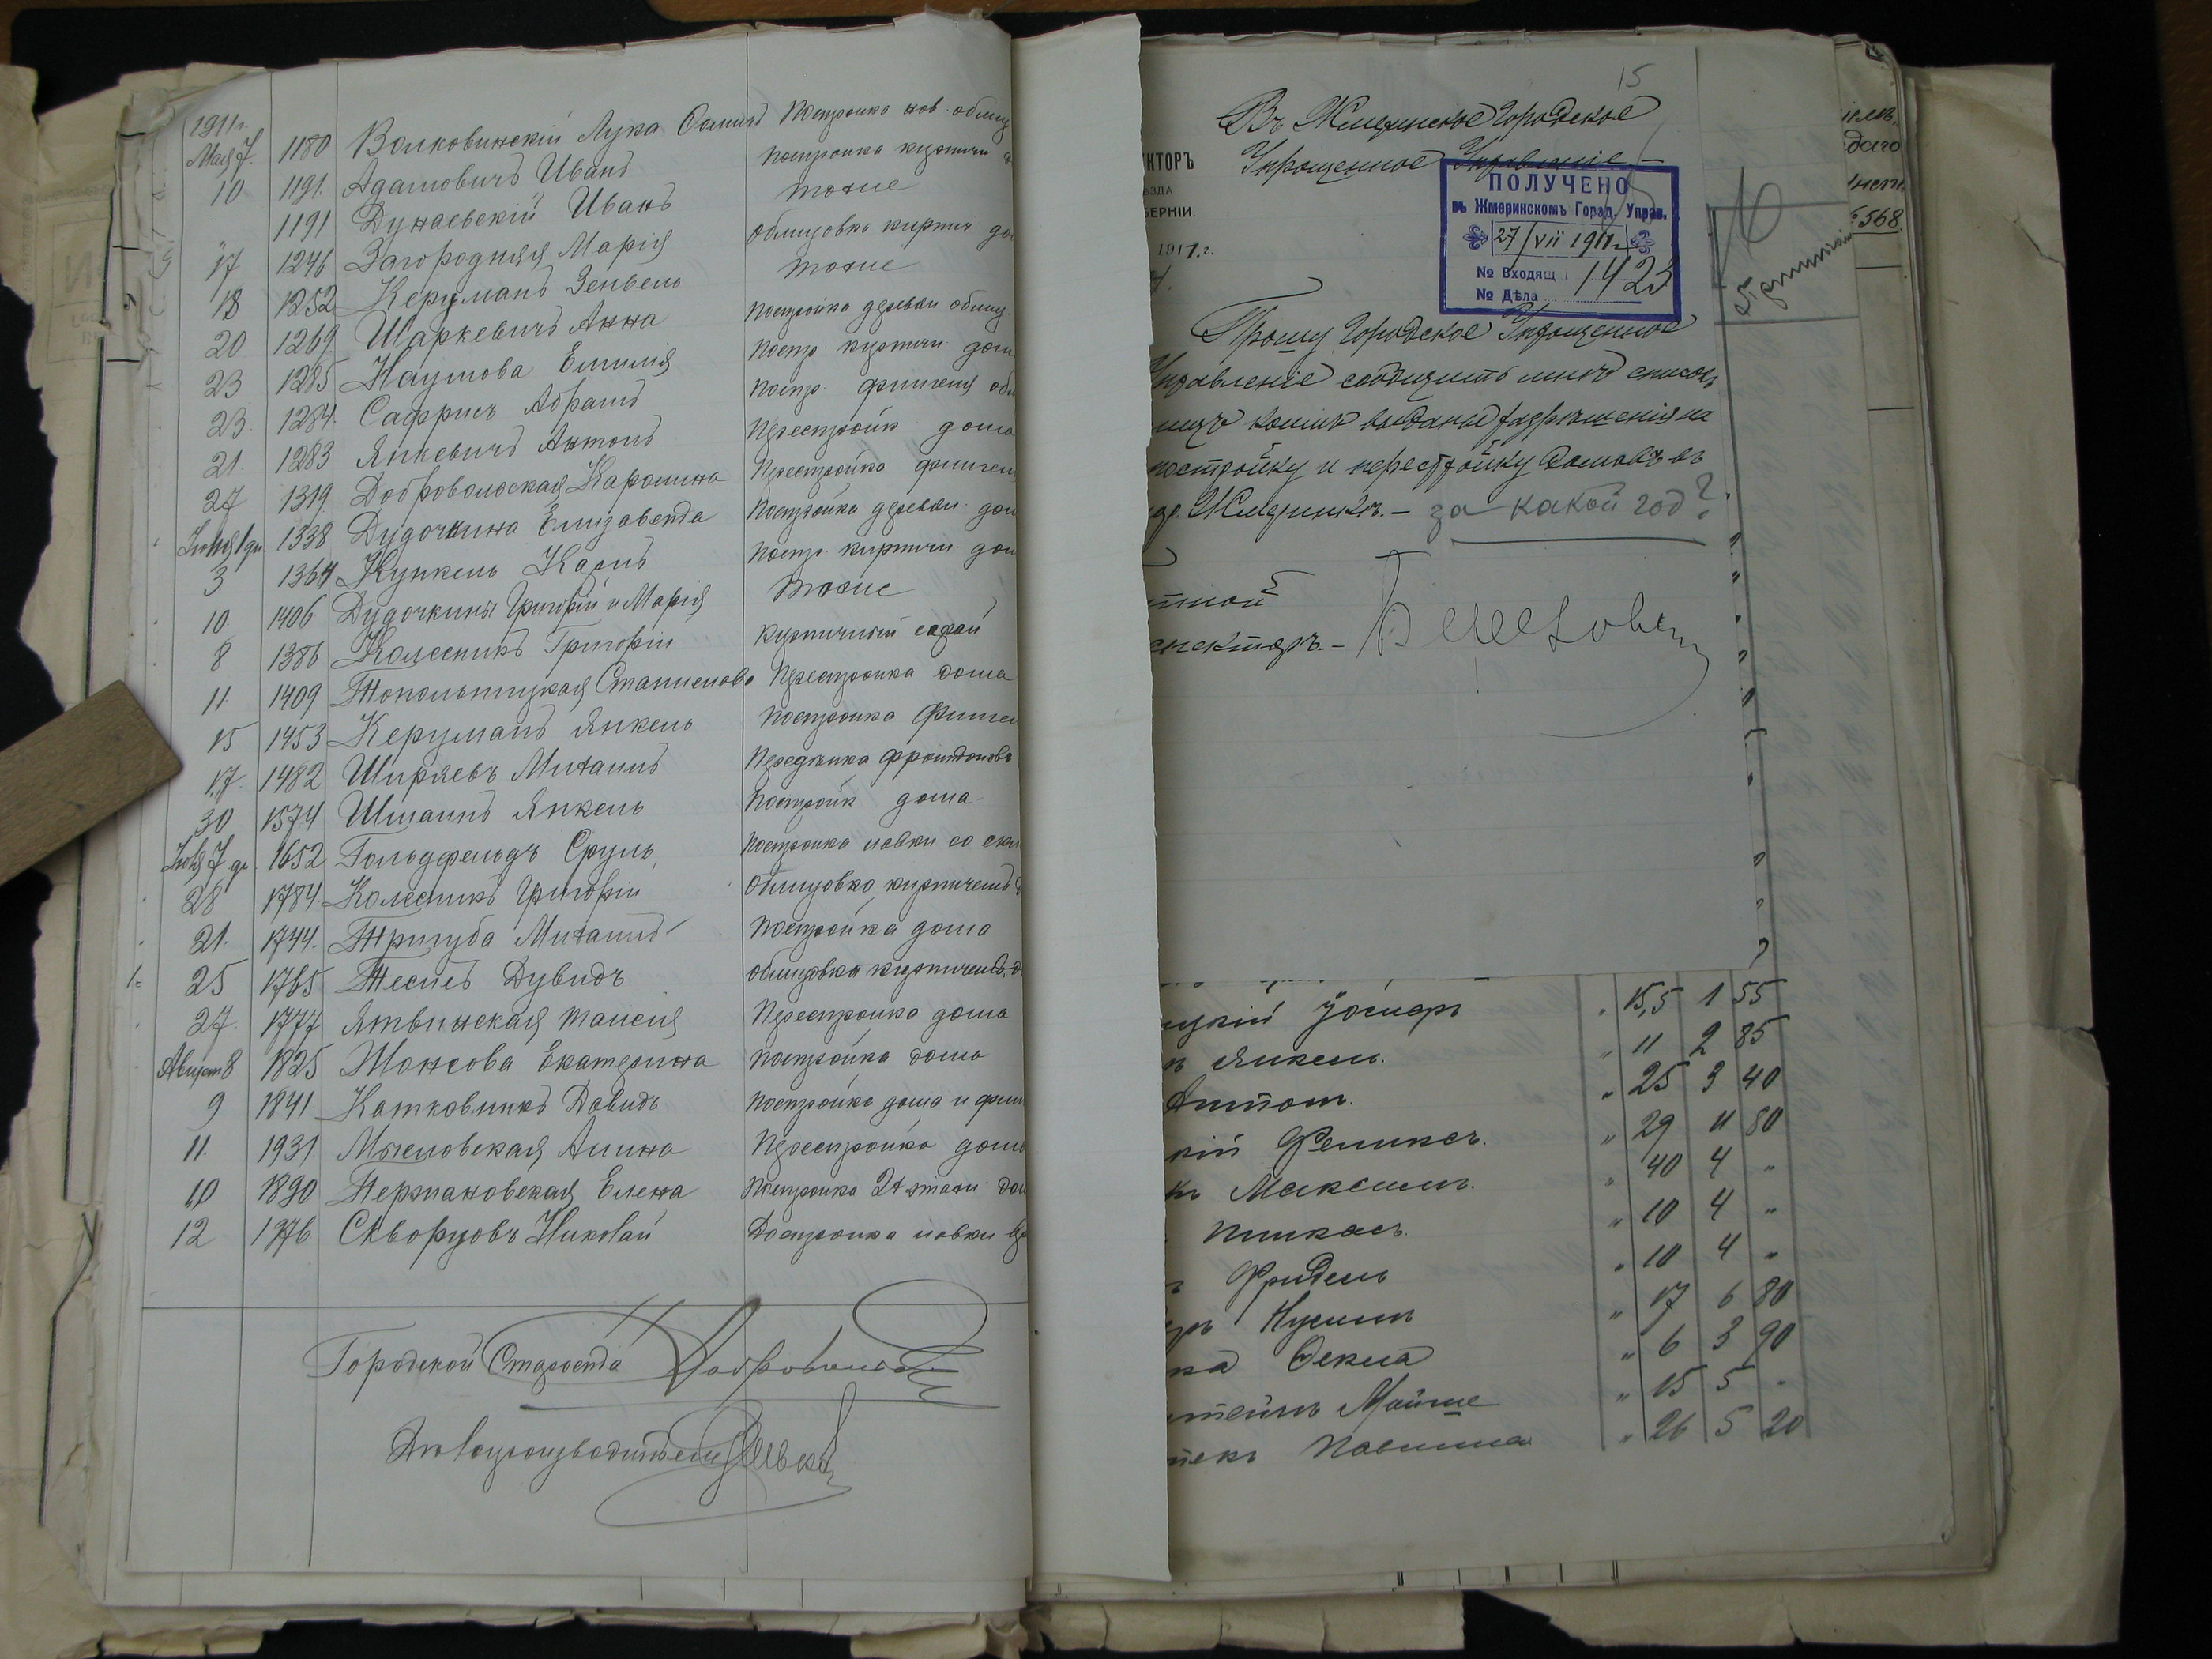 1911г.
Мая 7. 1180 Волковинскій Лука Постройка нов. облиц
10 1191. Адамовичъ Иванъ Постройка кирпичн
1191 Дунаевскій Иванъ тоже
17 1246 Загородняя Марія Облицовка кирпич. до
18 1252 Керцманъ Зенвель тоже
20 1269 Шаркевичъ Анна Постройка деревян облиц.
23 1285 Наумова Емилія Постр. кирпичн дом
23. 1284. Сафрисъ Абрамъ Постр. флигеля обл
21. 1283 Янкевичъ Антонъ Перестройк дома
27 1319. Добровольская Каролина Перестройка флигел
Іюня 1 дн. 1338 Дудочкина Елизавета Постройка деревян. дом
3 1364 Кункель Карлъ Постр. кирпичн дом
10. 1406 Дудочкины Григорій и Марія тоже
8 1386 Колесникъ Григорій Кирпичный сарай
11. 1409 Топольницкая Перестройка дома
15 1453 Керцманъ Янкель Постройка Флигел
17. 1482 Ширяевъ Михаилъ Передѣлка фронтоновъ
30 1574 Шмаинъ Янкель Постройк дома
Іюля 7 дн. 1652 Гольдфельдъ Сруль Постройка лавки со скл
28 1784. Колесникъ Григорій Облицовка кирпичемъ д
21. 1744. Тригуба Михаилъ Постройка дома
25 1765 Теслеъ Дувидъ облицовка кирпичемъ. д
27. 1777 Ятвинская Таисія Перестройка дома
Август 8 1825 Жонсова Екатерина Постройка дома
9 1841 Катковникъ Давидъ Постройка дома и фли
11. 1931 Мысловская Алина Перестройка дома
10 1890 Терпановская Елена Постройка 2х этажн дом
12 1976 Скворцовъ Николай Достройка лавки
Городской Староста
Дѣлопроизводитель
15
Въ Жмеринское Городское
Упрощенное Управленіе –
КТОРЪ
ѢЗДА
БЕРНІИ.
1911.г.
ПОЛУЧЕНО
въ Жмеринскомъ Город. Управ.
27/VII 1911г.
№ Входящ 1423
№ Дѣла
Прошу Городское Упрощенное
Управленіе сообщить мнѣ списокъ
лицъ коимъ выданы разрѣшенія на
постройку и перестройку домовъ въ
гор. Жмеринкѣ. – за какой год?
тной
спекторъ. –
цкій Іосифъ " 15,5 1 55
ъ Янкель. " 11 2 85
Антонъ. " 25 3 40
кій Феликсъ. " 29 11 80
къ Максимъ. " 40 4 "
Пинкасъ. " 10 4 "
Фридель " 10 4 "
Нусимъ " 17 6 80
ка Ѳекла " 6 3 90
штейнъ Мойше " 15 5 "
Павлина " 26 5 20
даго
568.